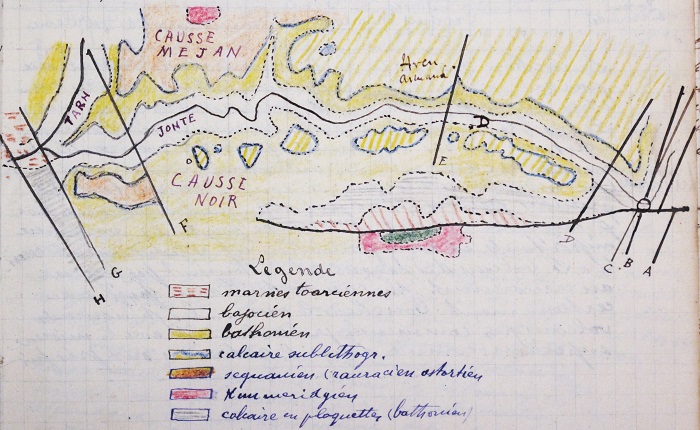 CAUSSE
MEJAN
Aven
Armand
TARN
JONTE
D
E
CAUSSE
NOIR
F
G
H
D
C
B
A
Légende
marnes toarciennes
bajocien
bathonien
calcaire sublithogr.
sequanien (rauracien astartien
Kimmeridgien
calcaire en plaquettes (bathonien)